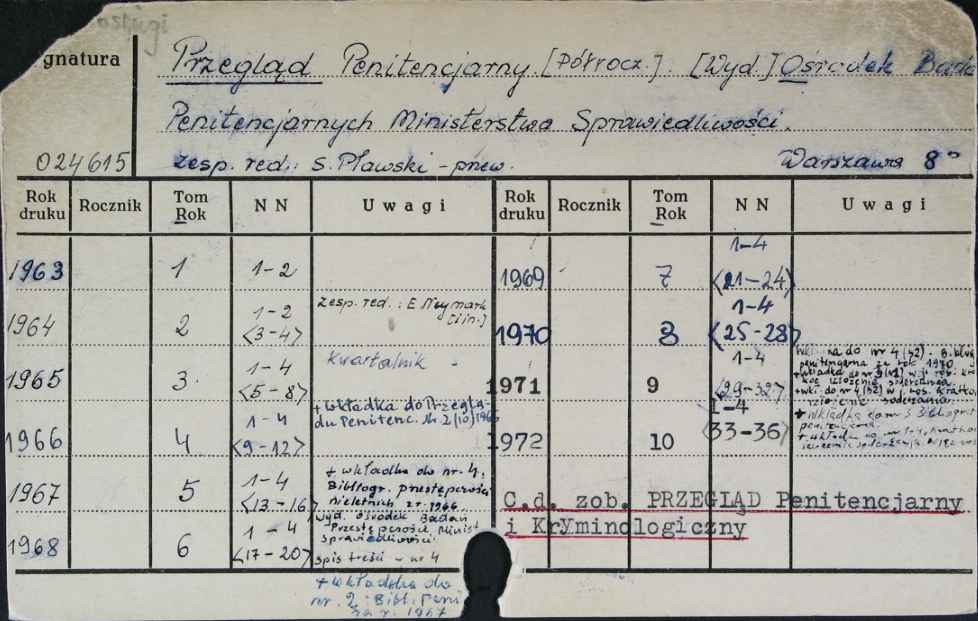 gnatura Przegląd Penitencjarny [Półrocz.]. [Wyd.] Ośrodek Bad
Penitencjarnych Ministerstwa Sprawiedliwości.
024615 zesp. red.: S. Pławski - przew. Warszawa 8°
Rok druku Rocznik Tom Rok NN Uwagi Rok druku Rocznik Tom Rok NN Uwagi
1963 1 1-2
1964 2 1-2 <3-4> zesp. red.: E. Neymark [i in.]
1965 3. 1-4 <5-8> Kwartalnik
1966 4 1-4 <9-12> + wkładka do Przeglą-
du Penitenc. Nr 2 (10) 1966
1967 5 1-4 <13-16> + wkładka do nr. 4.
Bibliogr. przestępczości
nieletnich z r. 1966
1968 6 1-4 <17-20> Wyd. Ośrodek Badań
Przestępczości Minist
Sprawiedliwości.
spis treści w nr 4
+ wkładka do
nr. 2: Bibl. Peni
za r. 1967
1969 7 1-4 <21-24>
1970 8 1-4 <25-28>
1971 9 1-4 <29-32>
do nr 4 (32). Bibl
penitencjarna za rok 1970
1972 10 1-4 <33-36>
C.d. zob. PRZEGLĄD Penitencjarny
i KrYminologiczny